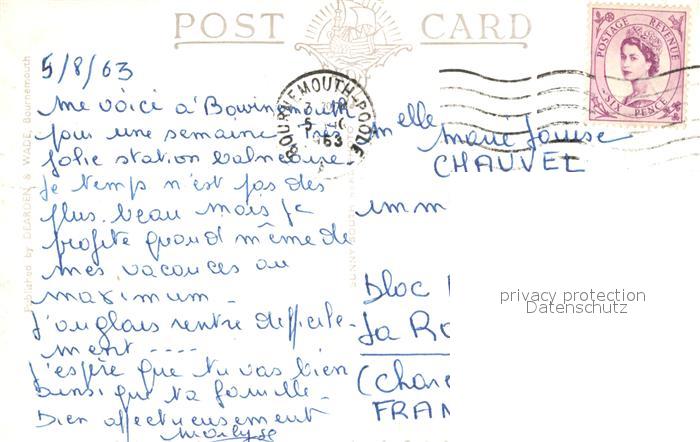 POST CARD
5/8/63
me voici à Bournemouth
pour une semaine très
jolie station balnéaire.
Le temps n'est pas des
plus beau mais je
profite quand même de
mes vacances au
maximum -
L'anglais rentre difficile-
ment ----
J'espère que tu vas bien
ainsi que ta famille -
Bien affectueusement
BOURNEMOUTH-POOLE
1963
POSTAGE REVENUE
SIX PENCE
Melle Marie Louise
CHAUVET
imm
Bloc
La Ro
(Chare
FRAN
privacy protection
Datenschutz
Published by DEARDEN & WADE Bournemouth